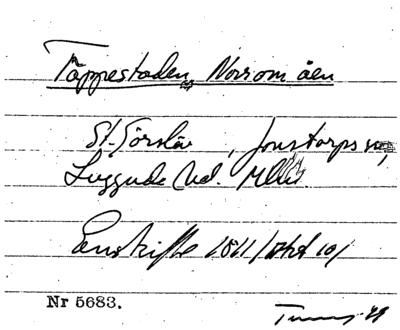 Täppestaden, Norrom åen
St. Görslöv, Jonstorps sn,
Luggude hd. Mlhs
Enskifte 1811 /akt 10/
Nr 5683.